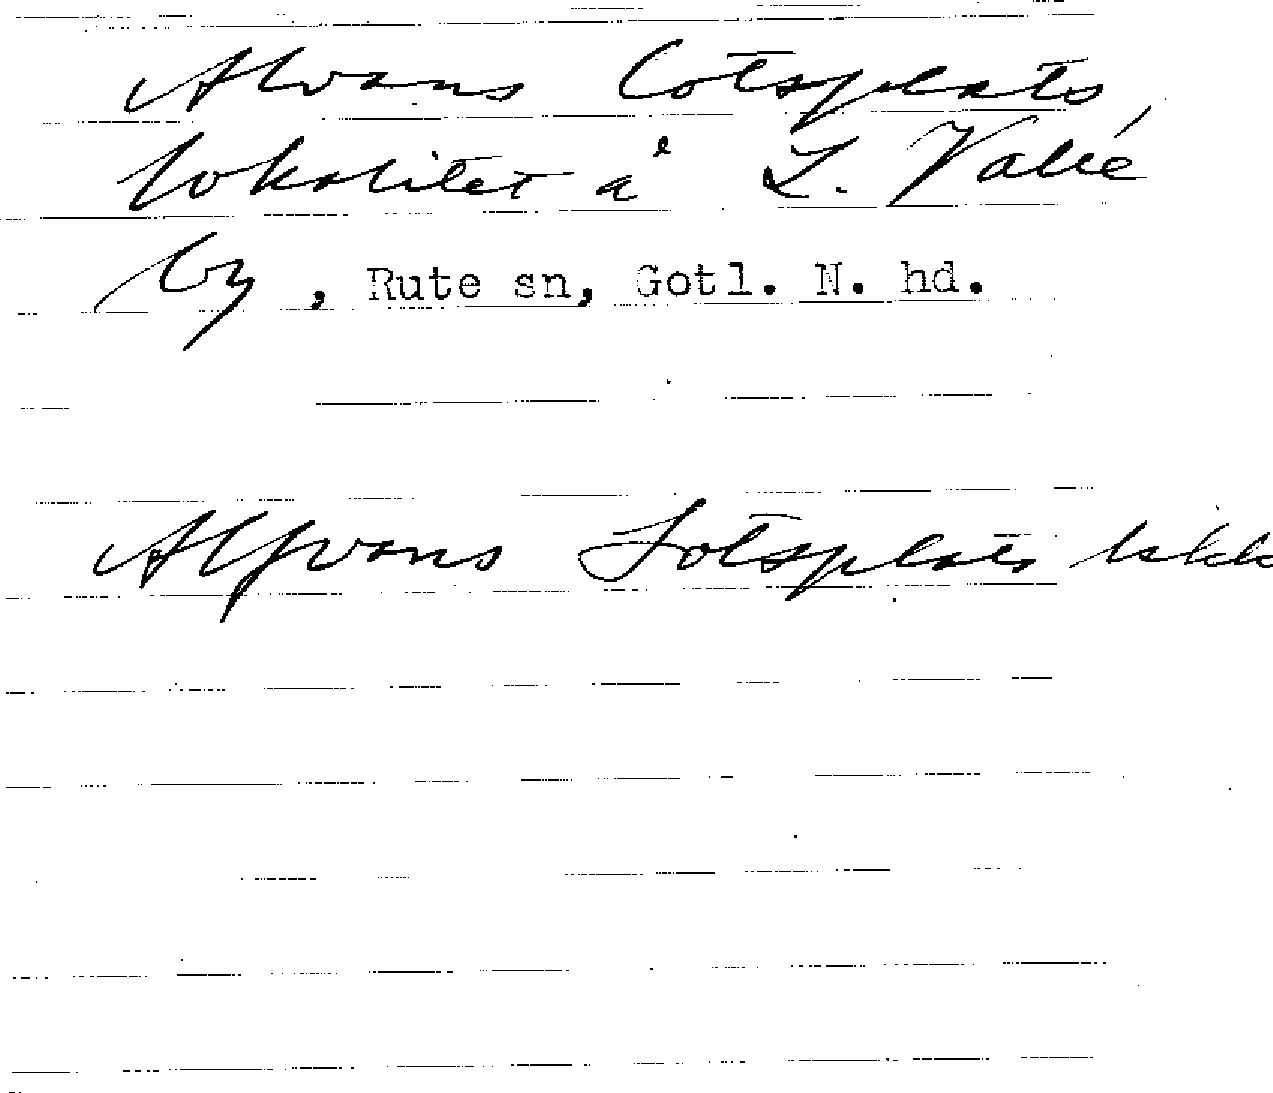 Alvans lotsplats,
lokalitet å L. Valle
by, Rute sn, Gotl. N. hd.
Alfvans Lotsplats